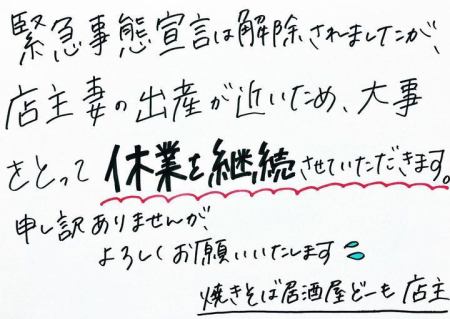 緊急事態宣言は解除されましたが、
店主妻の出産が近いため、大事
をとって休業を継続させていただきます。
申し訳ありませんが、
よろしくお願いいたします
焼きそば居酒屋どーも 店主